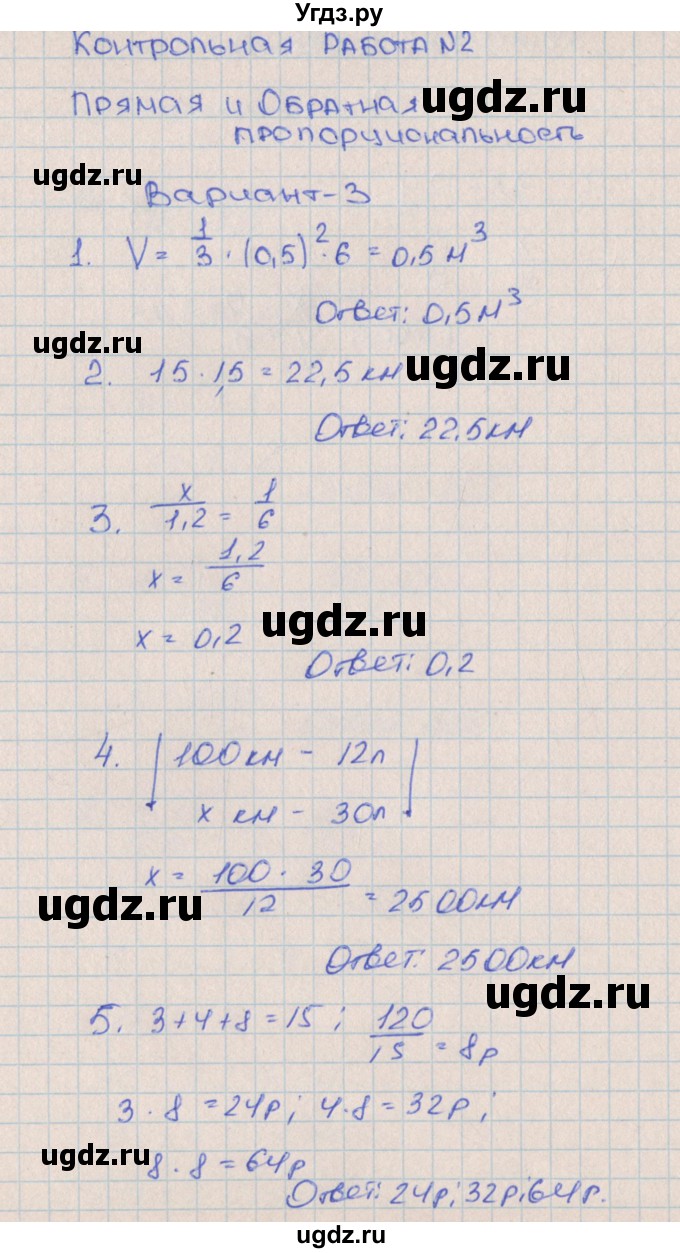 Угдз.ру
Контрольная работа №2
Прямая и обратная
ugdz.ru
пропорциональность
ugdz.ru
Вариант-3
1. V = 1/3 · (0,5)² · 6 = 0,5 м³
Ответ: 0,5 м³
ugdz.ru
2. 15 · 1,5 = 22,5 км
ugdz.ru
Ответ: 22.5км
3. x/1,2 = 1/6
x = 1,2/6
ugdz.ru
x = 0,2
ugdz.ru
Ответ: 0,2
4. 100км - 12л
x км - 30л
x = 100 · 30/12 = 2500км
ugdz.ru
Ответ: 2500км
ugdz.ru
5. 3+4+8=15; 120/15 = 8р
3 · 8 = 24р; 4·8 = 32р;
8 · 8 = 64р
ugdz.ru
Ответ: 24р; 32р; 64р.
ugdz.ru